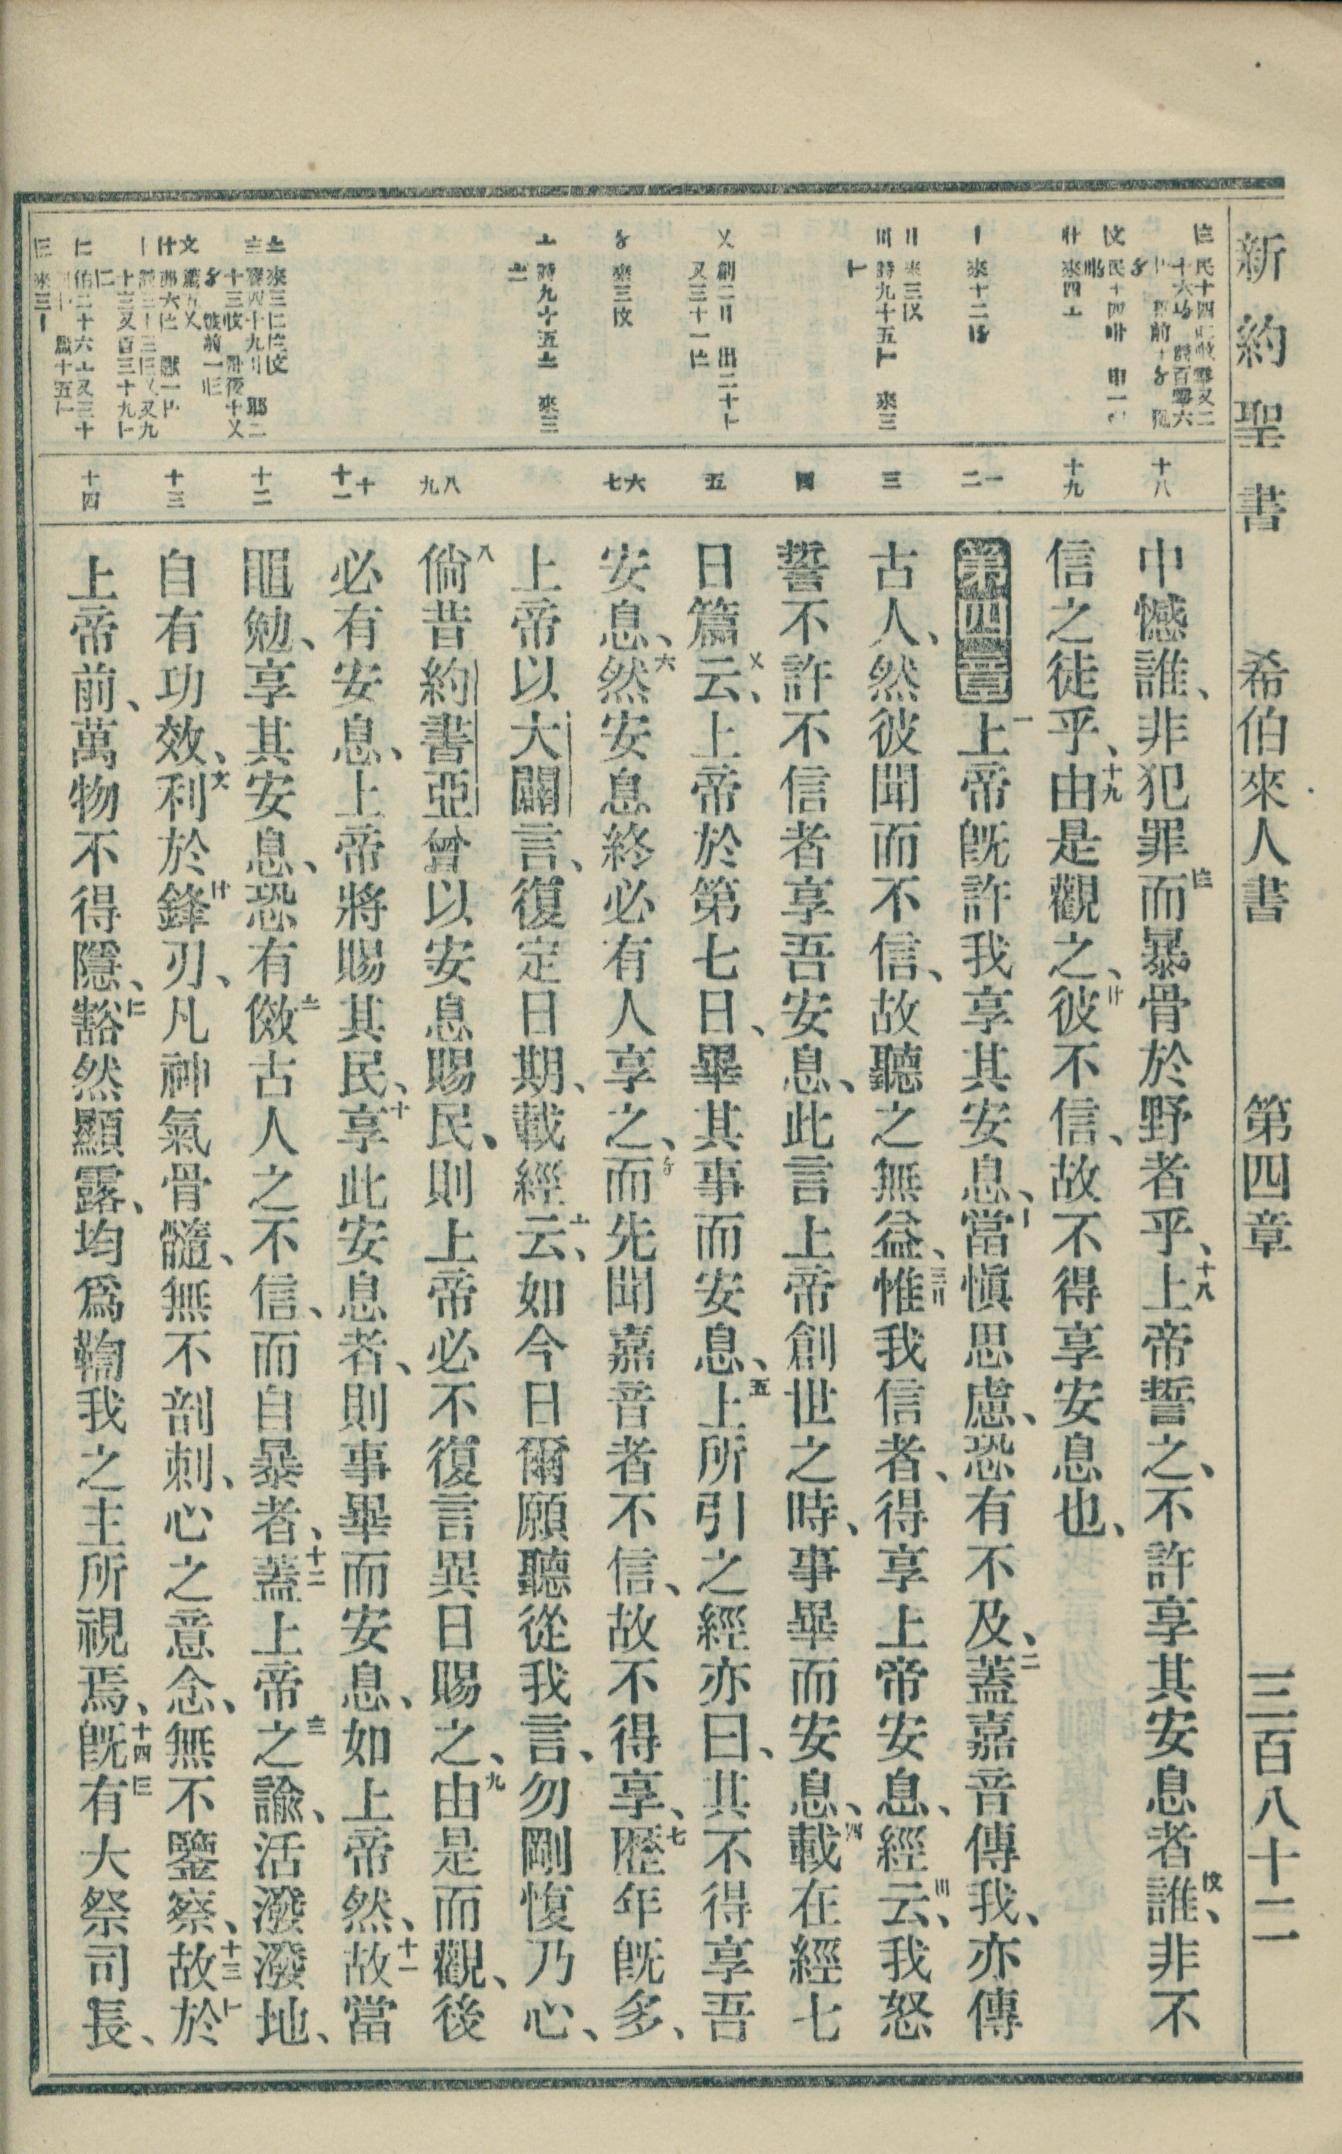 新約聖書 希伯來人書 第四章 三百八十二
十八
十九
一二
三
四
五
六七
八九
十十一
十二
十三
十四
中憾誰、非犯罪而暴骨於野者乎、十八上帝誓之、不許享其安息者誰、非不
信之徒乎、十九由是觀之、彼不信、故不得享安息也、
第四章 一上帝旣許我享其安息、當愼思慮、恐有不及、二蓋嘉音傳我、亦傳
古人、然彼聞而不信、故聽之無益、三惟我信者、得享上帝安息、經云、我怒
誓不許不信者享吾安息、此言上帝創世之時、事畢而安息、四載在經七
日篇云、上帝於第七日、畢其事而安息、五上所引之經亦曰、其不得享吾
安息、六然安息終必有人享之、而先聞嘉音者不信、故不得享、七歷年旣多、
上帝以大闢言、復定日期、載經云、如今日爾願聽從我言、勿剛愎乃心、
八倘昔約書亞曾以安息賜民、則上帝必不復言異日賜之、九由是而觀、後
必有安息、上帝將賜其民、十享此安息者、則事畢而安息、如上帝然、十一故當
黽勉、享其安息、恐有傚古人之不信、而自暴者、十二蓋上帝之諭、活潑潑地、
自有功效、利於鋒刃、凡神氣骨髓、無不剖刺、心之意念、無不鑒察、十三故於
上帝前、萬物不得隱、豁然顯露、均爲鞫我之主所視焉、十四旣有大祭司長、